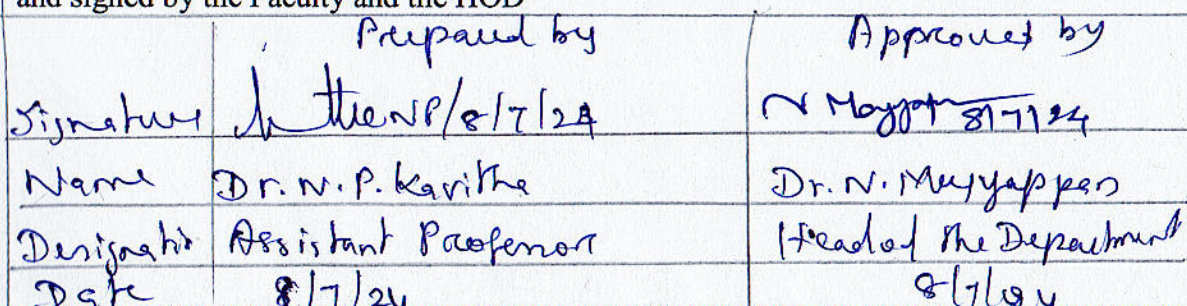 and signed by the Faculty and the HOD
Prepared by Approved by
Signature /8/7/24 N 8/7/24
Name Dr. N. P. Kavitha Dr. N. Muyyappan
Designatio Assistant Professor Head of the Department
Date 8/7/24 8/7/24